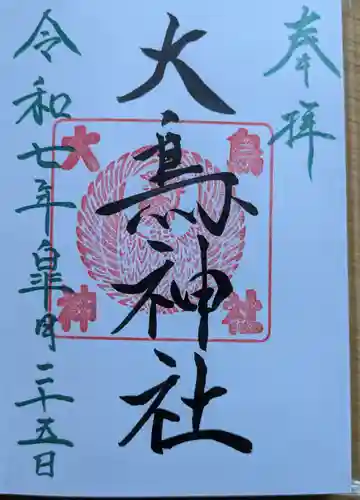 奉拝
大鳥神社
大鳥
神社
令和七年皐月二十五日